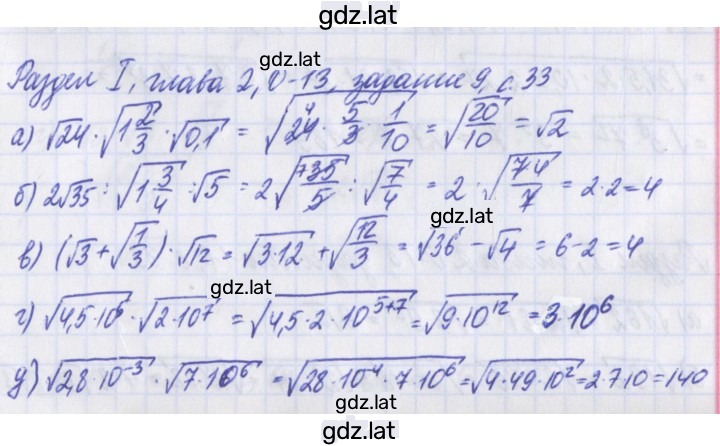 gdz.lat
gdz.lat
Раздел I, глава 2, О-13, задание 9, с. 33
а) √24 · √1 2/3 · √0,1 = √24 4 · 5/3 · 1/10 = √20/10 = √2
б) 2√35 : √1 3/4 : √5 = 2√7·35/5 : √7/4 = 2 · √7·4/7 = 2·2=4
gdz.lat
в) (√3 + √1/3) · √12 = √3·12 + √12/3 = √36 - √4 = 6-2=4
gdz.lat
г) √4,5·10⁵ · √2·10⁷ = √4,5·2·10⁵⁺⁷ = √9·10¹² = 3·10⁶
д) √2,8·10⁻³ · √7·10⁶ = √28·10⁻⁴·7·10⁶ = √4·49·10² = 2·7·10=140
gdz.lat
gdz.lat